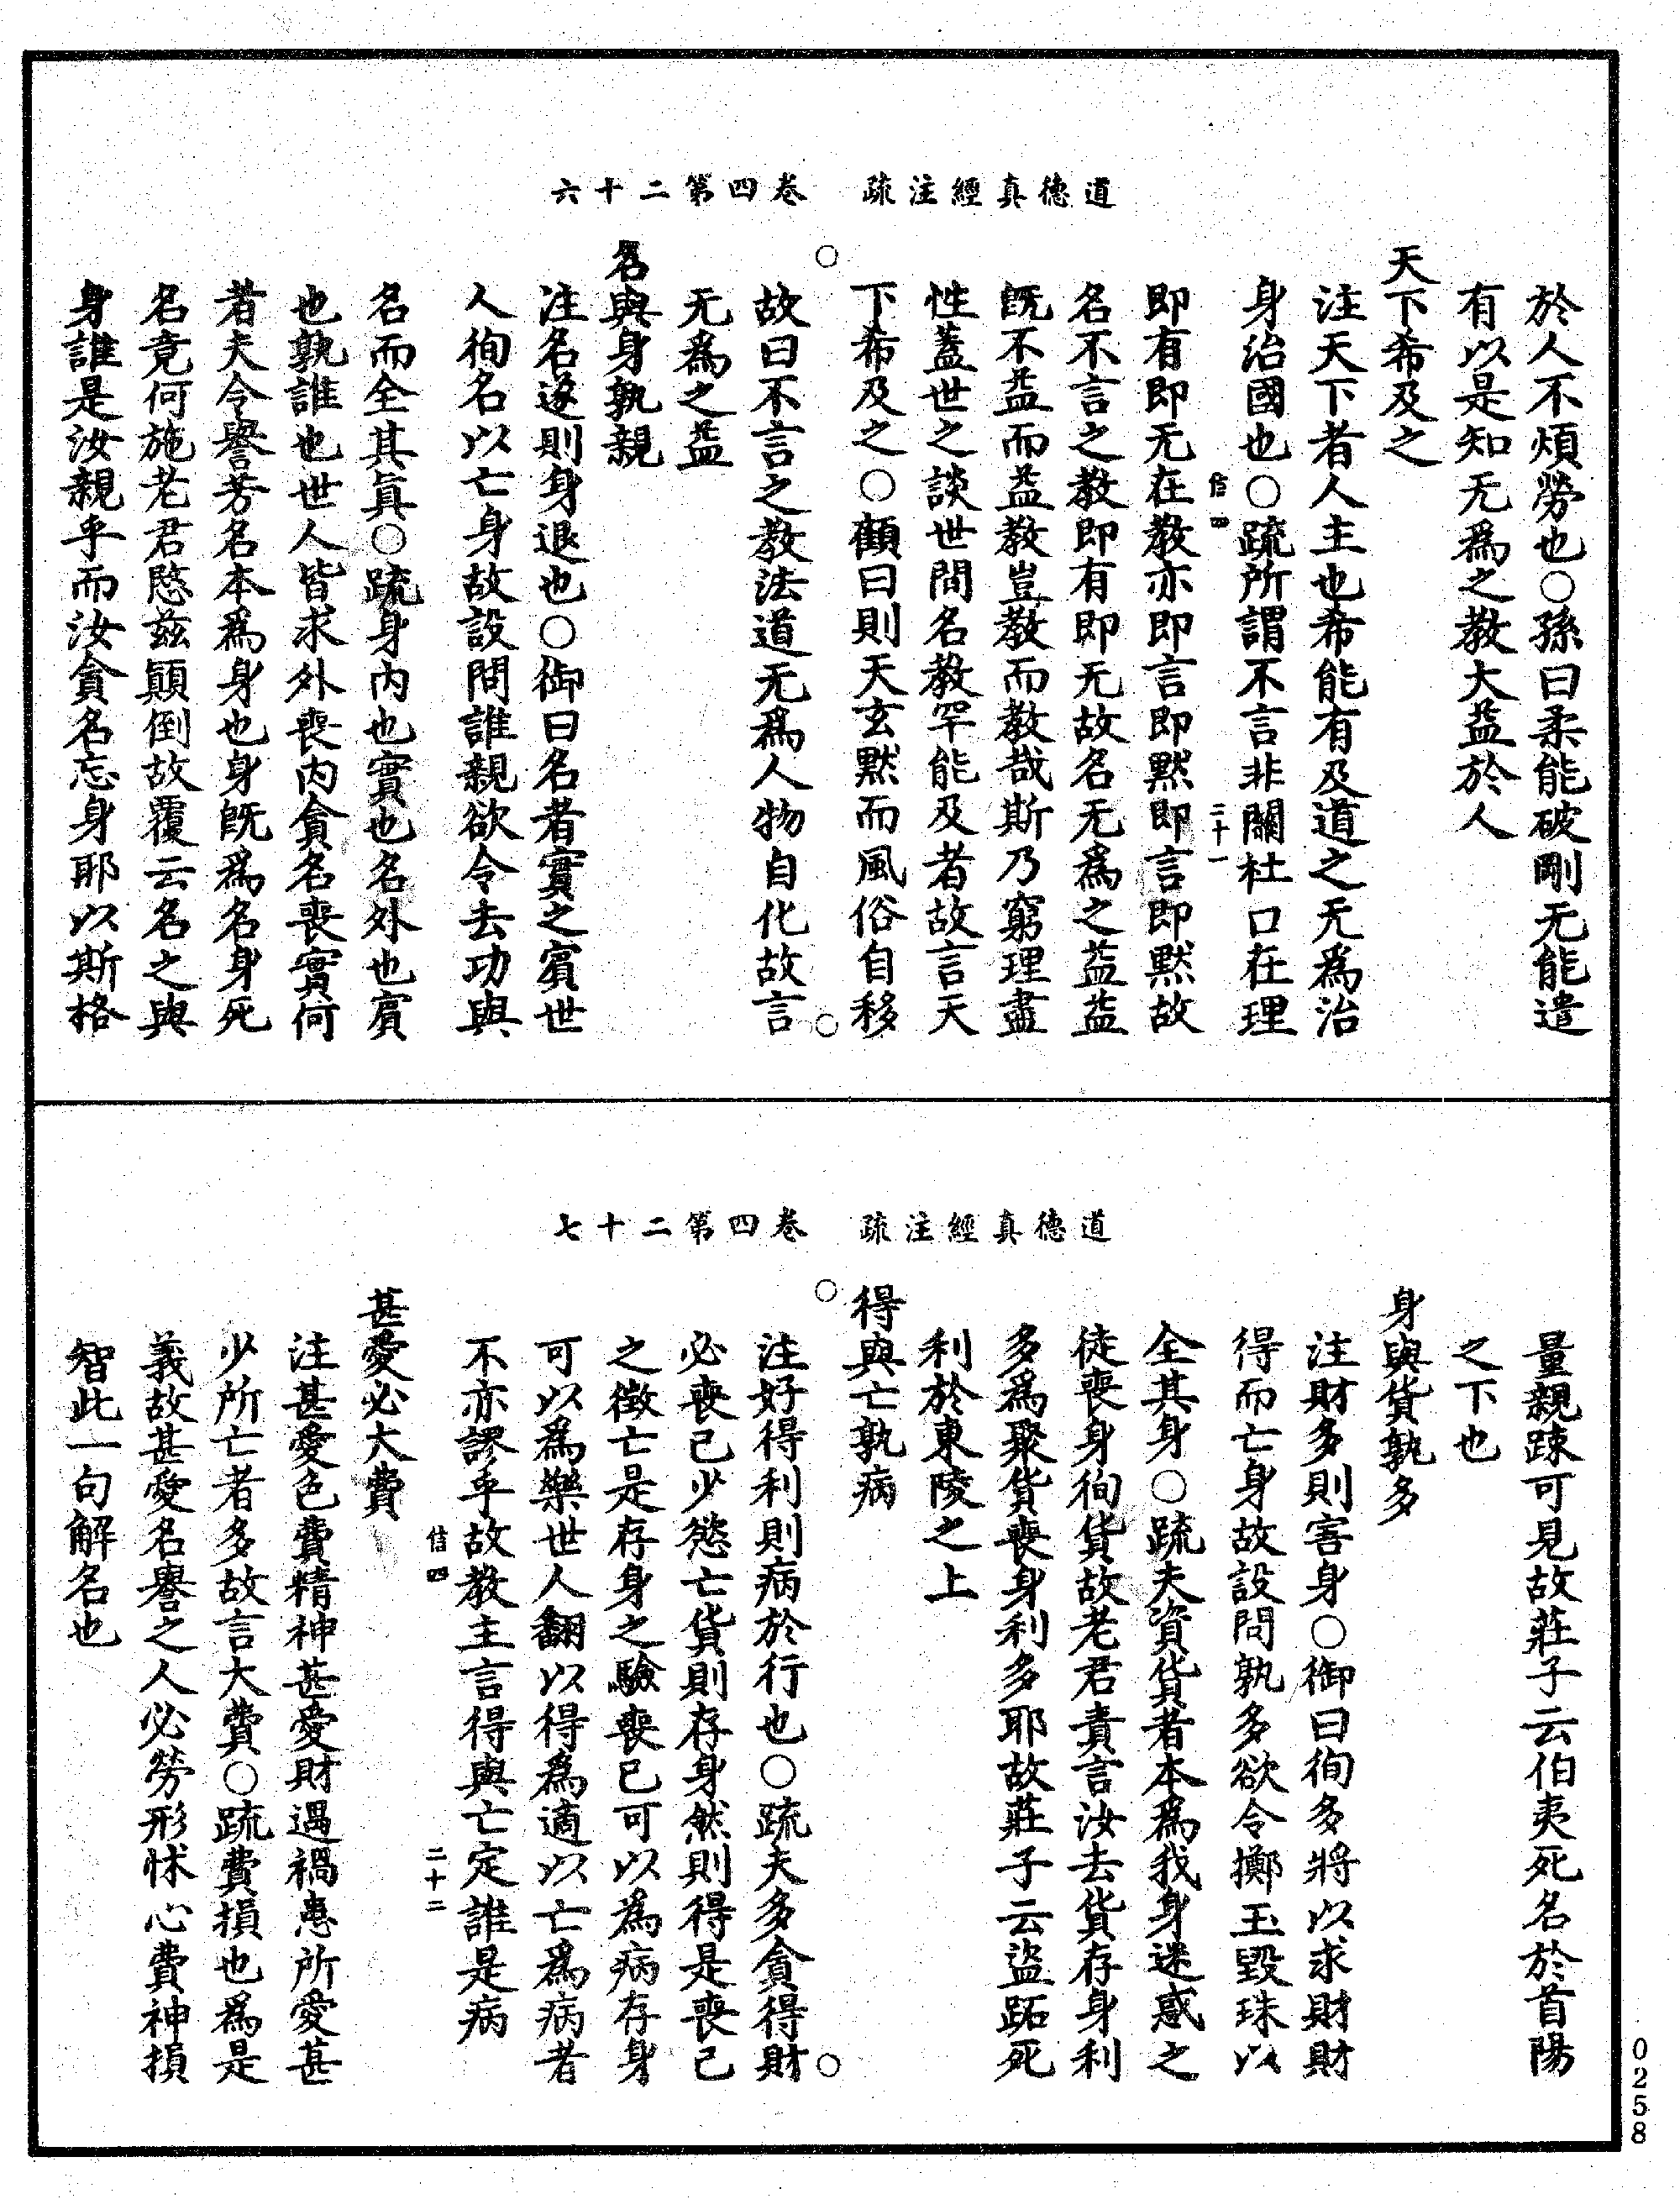 道德真經注疏 卷四第二十六
於人不煩勞也○孫曰柔能破剛无能遣
有以是知无爲之教大益於人
天下希及之
注天下者人主也希能有及道之无爲治
身治國也○疏所謂不言非關杜口在理
信四 二十一
即有即无在教亦即言即默即言即默故
名不言之教即有即无故名无爲之益益
旣不益而益教豈教而教哉斯乃窮理盡
性蓋世之談世間名教罕能及者故言天
下希及之○顧曰則天玄默而風俗自移
故曰不言之教法道无爲人物自化故言
无爲之益
名與身孰親
注名遂則身退也○御曰名者實之賓世
人徇名以亡身故設問誰親欲令去功與
名而全其眞○疏身內也實也名外也賓
也孰誰也世人皆求外喪內貪名喪實何
者夫令譽芳名本爲身也身旣爲名身死
名竟何施老君愍茲顚倒故覆云名之與
身誰是汝親乎而汝貪名忘身耶以斯格
道德真經注疏 卷四第二十七
量親踈可見故莊子云伯夷死名於首陽
之下也
身與貨孰多
注財多則害身○御曰徇多將以求財財
得而亡身故設問孰多欲令擲玉毀珠以
全其身○疏夫資貨者本爲我身迷惑之
徒喪身徇貨故老君責言汝去貨存身利
多爲聚貨喪身利多耶故莊子云盜跖死
利於東陵之上
得與亡孰病
注好得利則病於行也○疏夫多貪得財
必喪己少慾亡貨則存身然則得是喪己
之徵亡是存身之驗喪已可以為病存身
可以爲樂世人翻以得爲適以亡爲病者
不亦謬乎故教主言得與亡定誰是病
信四 二十二
甚愛必大費
注甚愛色費精神甚愛財遇禍患所愛甚
少所亡者多故言大費○疏費損也爲是
義故甚愛名譽之人必勞形怵心費神損
智此一句解名也
0258